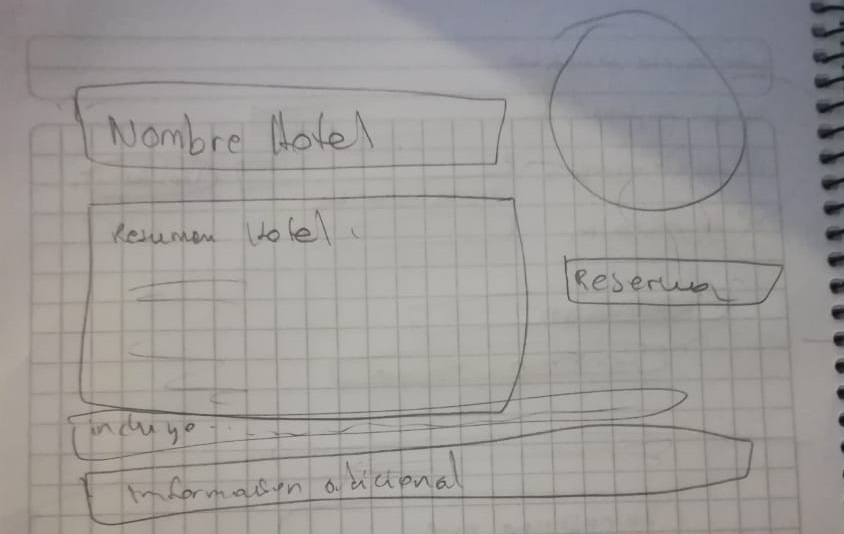 Nombre Hotel
Resumen Hotel.
Reserva
incluye
informacion adicional